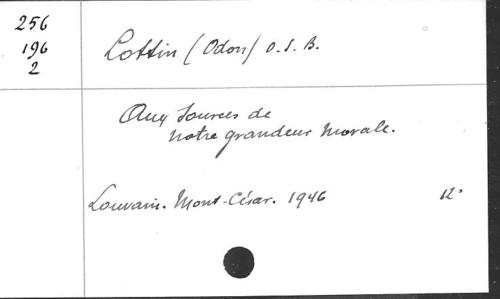 256
196
2
Lottin (Odon) O.S.B.
Aux Sources de
notre grandeur morale.
Louvain. Mont-César. 1946 12°